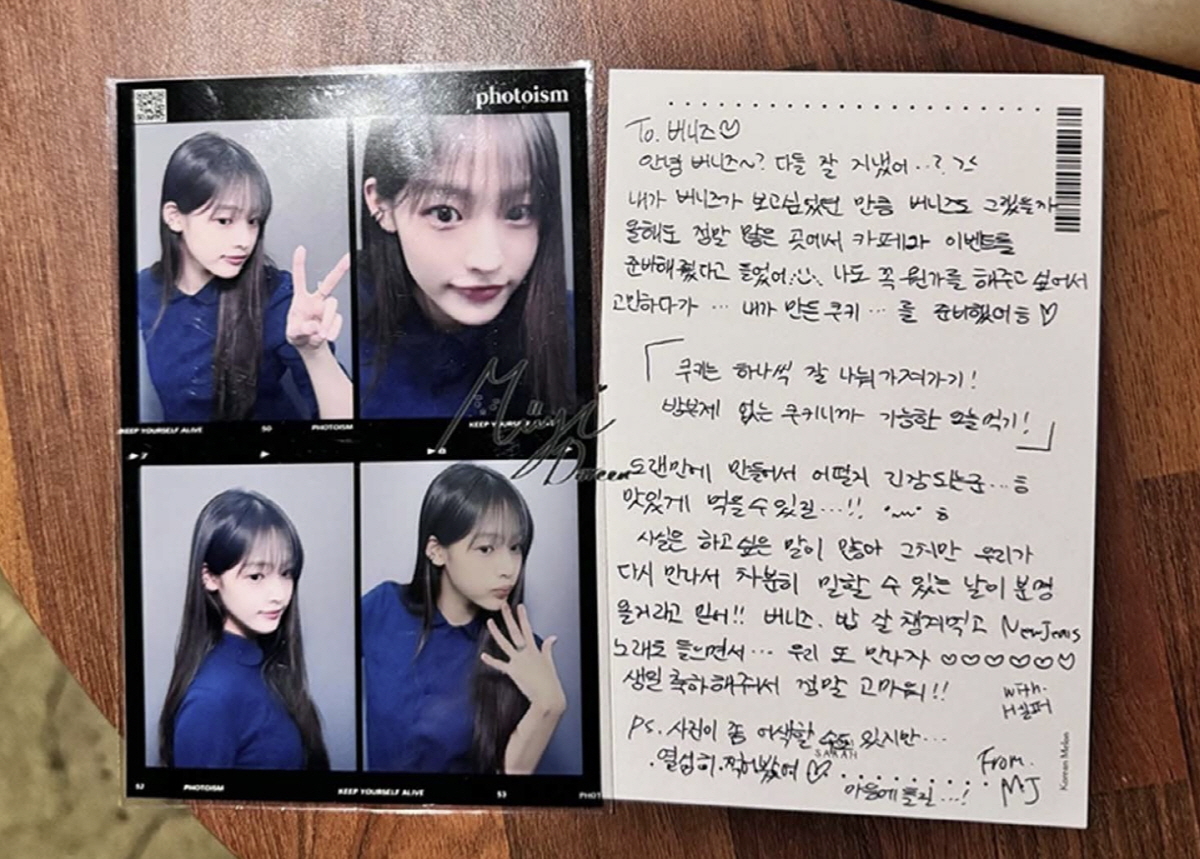 photoism
KEEP YOURSELF ALIVE 50 PHOTOISM KEEP YOURSELF ALIVE
52 PHOTOISM KEEP YOURSELF ALIVE 53 PHOTO
To. 버니즈♡
안녕 버니즈~? 다들 잘 지냈어..? ㄱㅅ
내가 버니즈가 보고싶었던 만큼 버니즈도 그랬을까
올해도 정말 많은 곳에서 카페과 이벤트를
준비해줬다고 들었어 나도 꼭 뭔가를 해주고 싶어서
고민하다가 ... 내가 만든 쿠키 ... 를 준비했어ㅎ ♡
「쿠키는 하나씩 잘 나눠가져가기!
방부제 없는 쿠키니까 가능한 오늘먹기!」
오랜만에 만들어서 어떨지 긴장되는군...ㅎ
맛있게 먹을수있길...!! ㅎ
사실은 하고싶은 말이 많아 그치만 우리가
다시 만나서 차분히 말할 수 있는 날이 분명
올거라고 믿어!! 버니즈. 밥 잘 챙겨먹고 NewJeans
노래도 들으면서... 우리 또 만나자 ♡♡♡♡♡♡
생일 축하해줘서 정말 고마워!!
with.
Ps. 사진이 좀 어색할 수도 있지만...
SARAH
.열심히.찍어봤어 ♡
마음에 들길...!
From.
MJ
Korean Melon